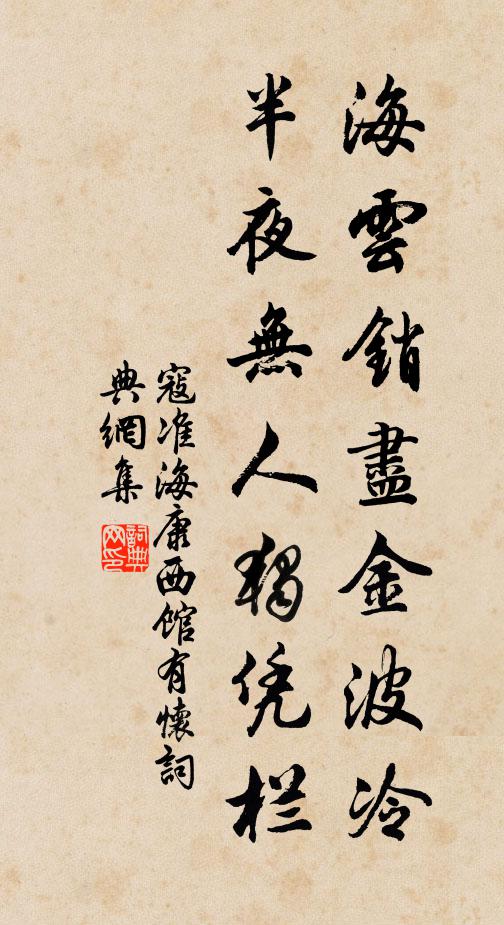 海雲銷盡金波冷
半夜無人獨凭栏
寇准海康西馆有懷詞
典網集
詞典
网印